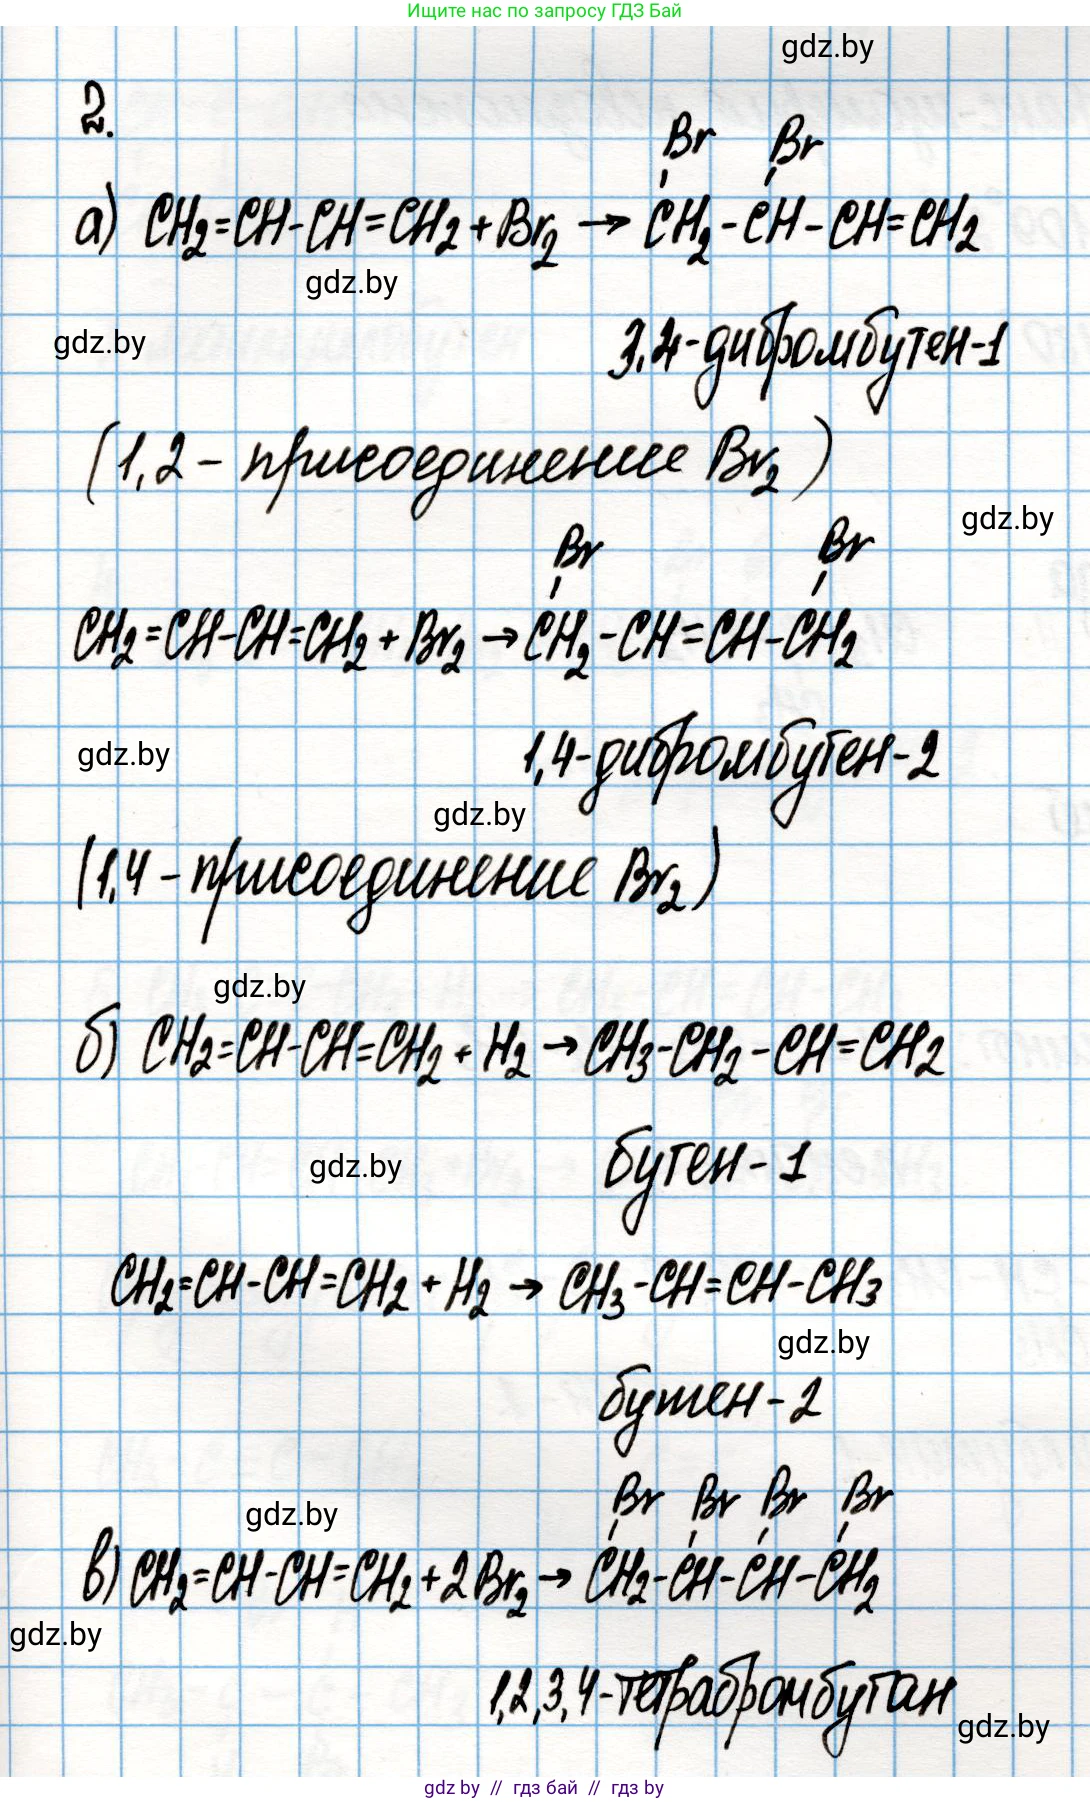 Ищите нас по запросу ГДЗ Бай
gdz.by
2.
Br Br
а) CH₂=CH-CH=CH₂+Br₂ → CH₂-CH-CH=CH₂
gdz.by
gdz.by
3,4-дибромбутен-1
(1,2-присоединение Br₂)
gdz.by
Br Br
CH₂=CH-CH=CH₂+Br₂ → CH₂-CH=CH-CH₂
gdz.by
1,4-дибромбутен-2
gdz.by
(1,4-присоединение Br₂)
gdz.by
б) CH₂=CH-CH=CH₂+H₂ → CH₃-CH₂-CH=CH₂
gdz.by
бутен-1
CH₂=CH-CH=CH₂+H₂ → CH₃-CH=CH-CH₃
gdz.by
бутен-2
Br Br Br Br
gdz.by
в) CH₂=CH-CH=CH₂+2Br₂ → CH₂-CH-CH-CH₂
gdz.by
1,2,3,4-тетрабромбутан
gdz.by
gdz.by // гдз бай // гдз by